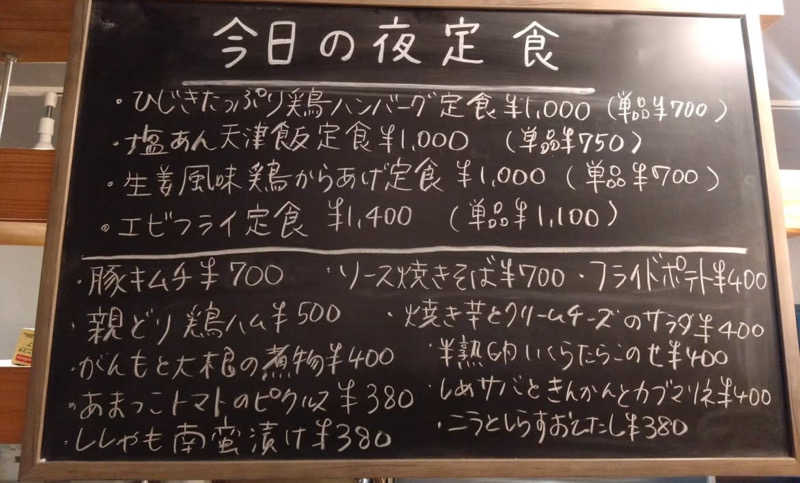 今日の夜定食
・ひじきたっぷり鶏ハンバーグ定食¥1,000（単品¥700）
・塩あん天津飯定食¥1,000（単品¥750）
・生姜風味鶏からあげ定食¥1,000（単品¥700）
・エビフライ定食 ¥1,400（単品¥1,100）
・豚キムチ¥700
・親どり鶏ハム¥500
・がんもと大根の煮物¥400
・あまっこトマトのピクルス¥380
・ししゃも南蛮漬け¥380
・ソース焼きそば¥700 ・フライドポテト¥400
・焼き芋とクリームチーズのサラダ¥400
・半熟卵いくらたらこのせ¥400
・しめサバときんかんとカブマリネ¥400
・ニラとしらすおひたし¥380